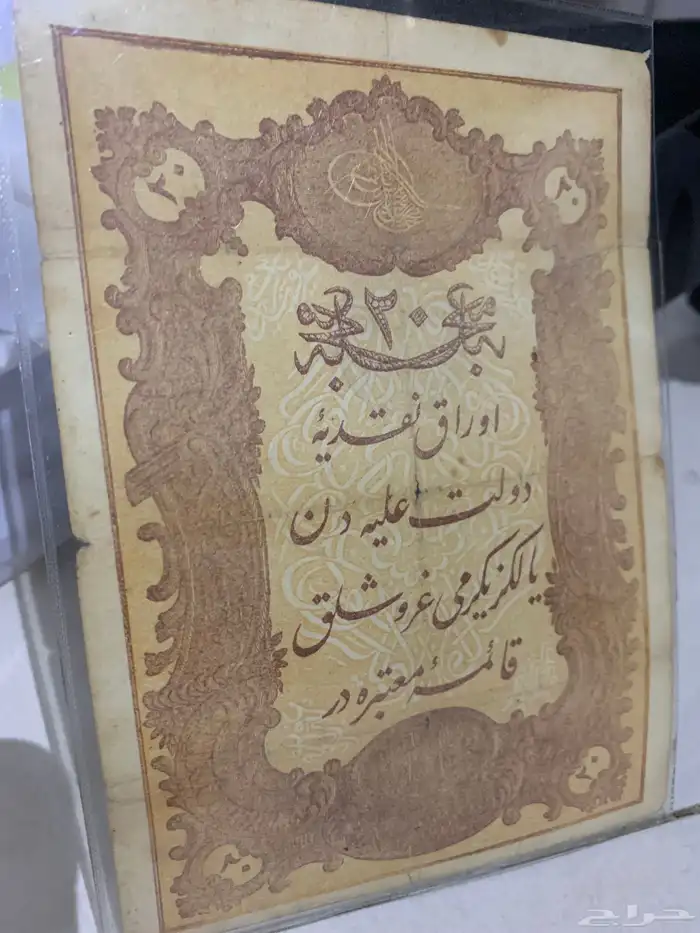 ٢٠ ٢٠
٢٠
اوراق نقدیهٔ
دولت علیه دن
یالکز یکرمی غروشلق
قائمهٔ معتبره در
٢٠ ٢٠
حراج